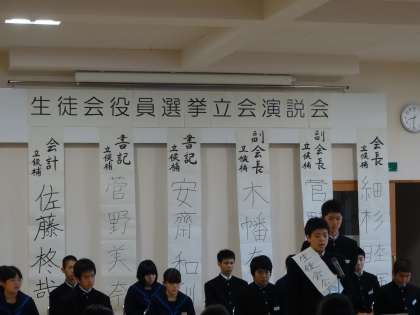 生徒会役員選挙立会演説会
会長
立候補
細杉睦
副会長
立候補
菅
副会長
立候補
木幡
書記
立候補
安齋和
書記
立候補
菅野美奈
会計
立候補
佐藤柊哉